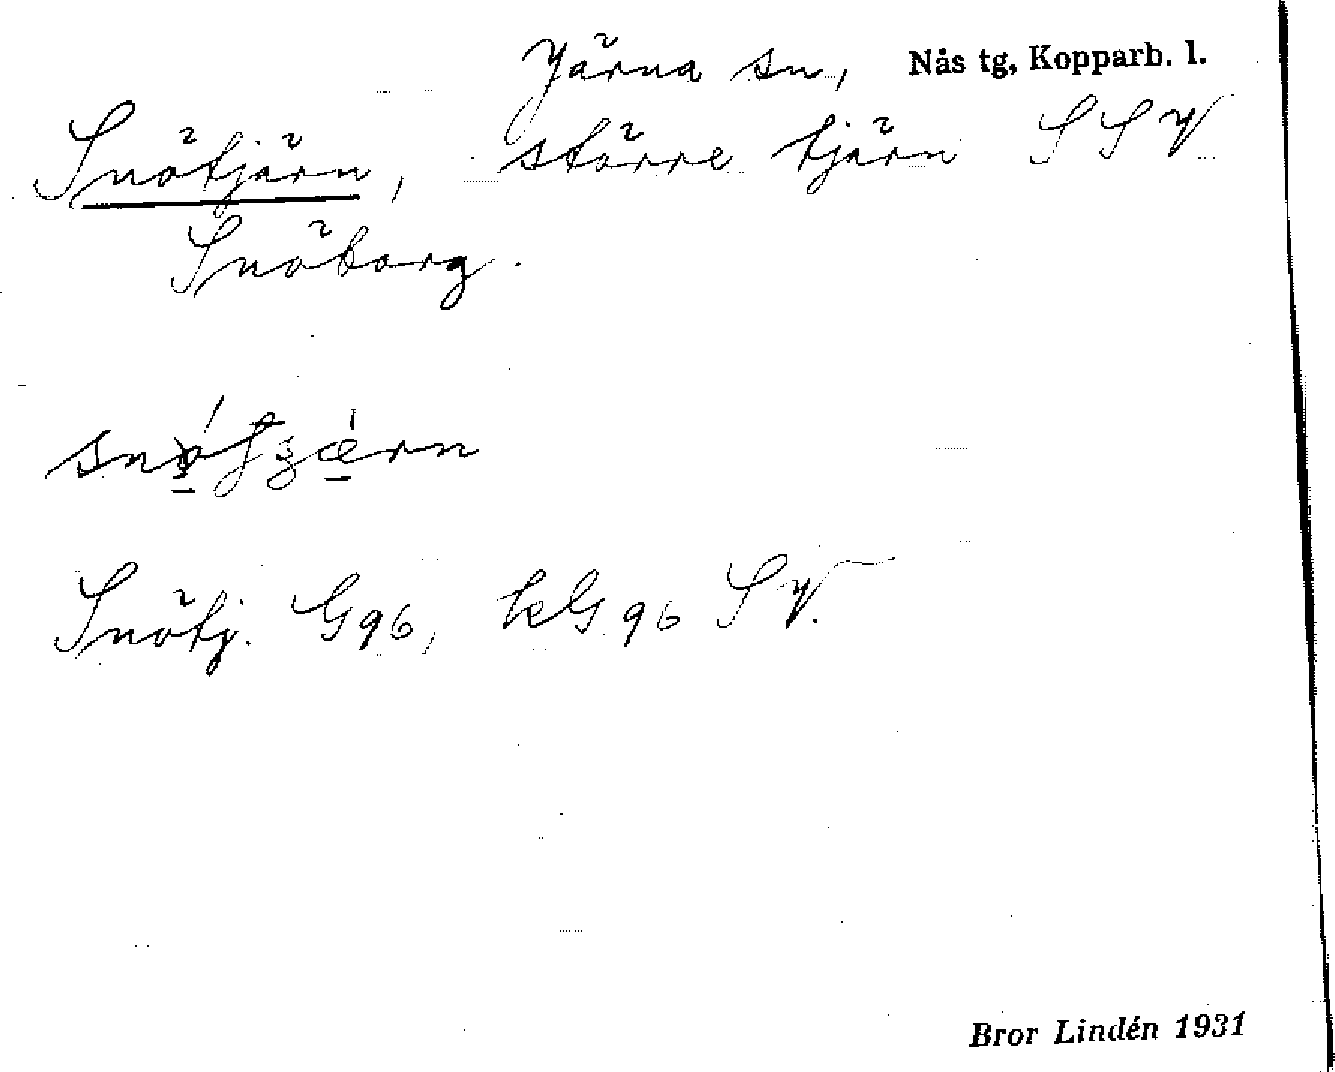 Järna sn, Nås tg, Kopparb. l.
Snötjärn, större tjärn SSV
Snöborg.
Snötj. G96, kG 96 SV.
Bror Lindén 1931